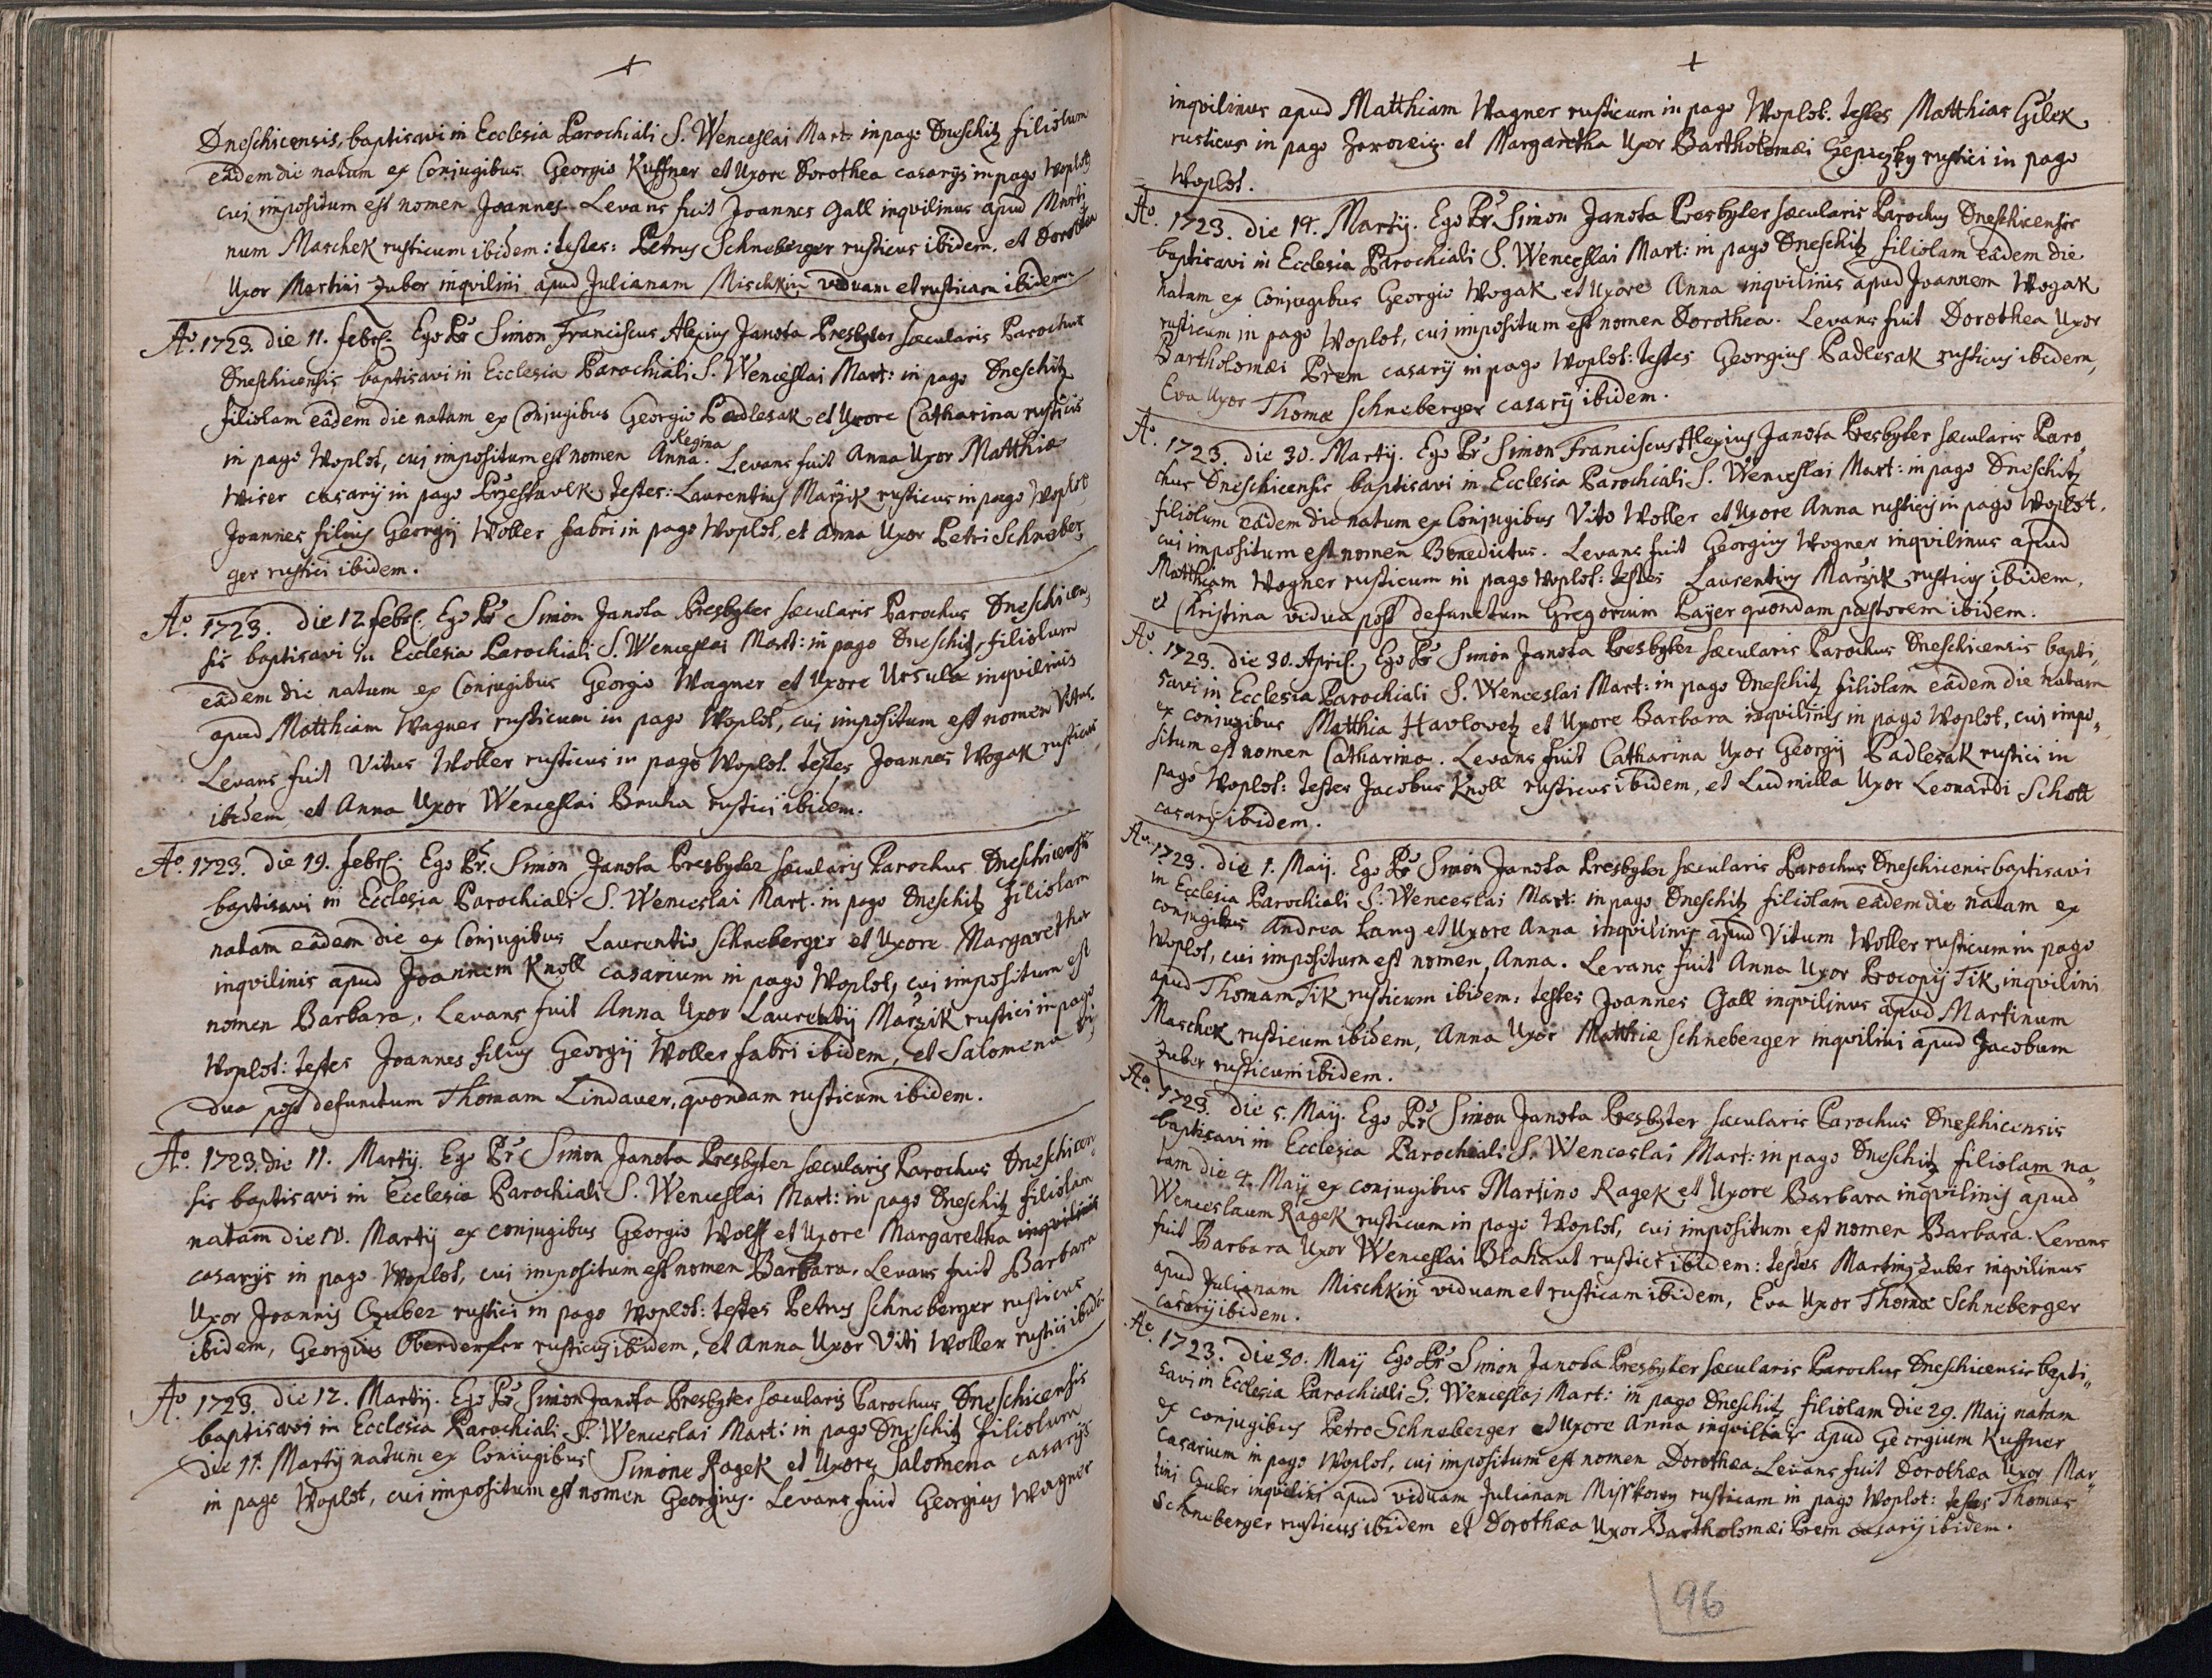 Dneschicensis, baptisavi in Ecclesia Parochiali S. Wenceslai Mart: in pago Dneschitz filiolum
eâdem die natum ex Conjugibus Georgio Kuffner et Uxore Dorothea casarijs in pago Woplot
cuj impositum est nomen Joannes. Levans fuit Joannes Gall inqvilinus apud Marti
num Maschek rusticum ibidem: testes: Petrus Schneberger rusticus ibidem. et Dorothea
Uxor Martini Zuber inqvilini apud Julianam Mischkin viduam et rusticam ibidem.
Aô. 1723. die 11. febr. Ego Pr Simon Franciscus Alexius Janota Presbyter sæcularis Parochus
Dneschicensis baptisavi in Ecclesia Parochiali S. Wenceslai Mart: in pago Dneschitz
filiolam eâdem die natam ex Conjugibus Georgio Padlesak et Uxore Catharina rusticis
Regina
in pago Woplot, cuj impositum est nomen Anna. Levans fuit Anna Uxor Matthiæ
Wiser casarij in pago Przestawlk testes: Laurentius Marzik rusticus in pago Woplot
Joannes filius Georgij Woller fabri in pago Woplot, et Anna Uxor Petri Schneber
ger rustici ibidem.
Aô. 1723. die 12 febr. Ego Pr Simon Janota Presbyter sæcularis Parochus Dneschicen
sis baptisavi in Ecclesia Parochiali S. Wenceslai Mart: in pago Dneschitz filiolum
eâdem die natum ex Conjugibus Georgio Wagner et Uxore Ursula inqvilinis
apud Matthiam Wagner rusticum in pago Woplot, cuj impositum est nomen Vitus.
Levans fuit Vitus Woller rusticus in pago Woplot. testes Joannes Wogak rusticus
ibidem, et Anna Uxor Wenceslai Bruha rustici ibidem.
Aô 1723. die 19. febr. Ego Pr. Simon Janota Presbyter sæcularis Parochus Dneschicensis
baptisavi in Ecclesia Parochiali S. Wenceslai Mart. in pago Dneschitz filiolam
natam eâdem die ex Conjugibus Laurentio Schneberger et Uxore Margaretha
inqvilinis apud Joannem Knoll casarium in pago Woplot, cui impositum est
nomen Barbara. Levans fuit Anna Uxor Laurentij Marzik rustici in pago
Woplot: testes Joannes filius Georgij Woller fabri ibidem, et Salomena vi
dua post defunctum Thomam Lindauer, qvondam rusticum ibidem.
Aô. 1723. die 11. Martij. Ego Pr Simon Janota Presbyter sæcularis Parochus Dneschicen
sis baptisavi in Ecclesia Parochiali S. Wenceslai Mart: in pago Dneschitz filiolam
natam die 10. Martij ex conjugibus Georgio Wolff et Uxore Margaretha inqvilinis
casarijs in pago Woplot, cui impositum est nomen Barbara. Levans fuit Barbara
Uxor Joannis Czuber rustici in pago Woplot: testes Petrus Schneberger rusticus
ibidem, Georgius Oberderfer rusticus ibidem, et Anna Uxor Viti Woller rustici ibidem
Aô 1723. die 12. Martij. Ego Pr Simon Janota Presbyter sæcularis Parochus Dneschicensis
baptisavi in Ecclesia Parochiali S. Wenceslai Mart: in pago Dneschitz filiolum
die 11. Martij natum ex Conjugibus Simone Ragek et Uxore Salomena casarijs
in pago Woplot, cui impositum est nomen Georgius. Levans fuit Georgius Wagner
inqvilinus apud Matthiam Wagner rusticum in pago Woplot. testes Matthias Gilek
rusticus in pago et Margaretha Uxor Bartholomæi rustici in pago
Woplot.
Aô. 1723. die 14. Martij. Ego Pr Simon Janota Presbyter sæcularis Parochus Dneschicensis
baptisavi in Ecclesia Parochiali S. Wenceslai Mart: in pago Dneschitz filiolam eâdem die
natam ex Conjugibus Georgio Wogak et Uxore Anna inqvilinis apud Joannem Wogak
rusticum in pago Woplot, cuj impositum est nomen Dorothea. Levans fuit Dorothea Uxor
Bartholomæi Prem casarij in pago Woplot: testes Georgius Padlesak rusticus ibidem,
Eva Uxor Thomæ Schneberger casarij ibidem.
Aô. 1723. die 30. Martij. Ego Pr Simon Franciscus Alexius Janota Presbyter sæcularis Paro
chus Dneschicensis baptisavi in Ecclesia Parochiali S. Wenceslai Mart: in pago Dneschitz
filiolum eâdem die natum ex Conjugibus Vito Woller et Uxore Anna rusticis in pago Woplot,
cui impositum est nomen Benedictus. Levans fuit Georgius Wogner inqvilinus apud
Matthiam Wogner rusticum in pago Woplot: testes Laurentius Marzik rusticus ibidem,
et Christina vidua post defunctum Gregorium Payer quondam pastorem ibidem.
Aô. 1723. die 30. April. Ego Pr Simon Janota Presbyter sæcularis Parochus Dneschicensis bapti„
savi in Ecclesia Parochiali S. Wenceslai Mart: in pago Dneschitz filiolam eâdem die natam
ex conjugibus Matthia Havlowetz et Uxore Barbara inqvilinis in pago Woplot, cui impo„
situm est nomen Catharina. Levans fuit Catharina Uxor Georgij Padlesak rustici in
pago Woplot: testes Jacobus Knoll rusticus ibidem, et Ludmilla Uxor Leonardi Schott
casarij ibidem.
Aô. 1723. die 1. Maij. Ego Pr Simon Janota Presbyter sæcularis Parochus Dneschicenis baptisavi
in Ecclesia Parochiali S. Wenceslai Mart: in pago Dneschitz filiolam eâdem die natam ex
conjugibus Andrea Lang et Uxore Anna inqvilinis apud Vitum Woller rusticum in pago
Woplot, cui impositum est nomen, Anna. Levans fuit Anna Uxor Procopij Tik inqvilini
apud Thomam Tik rusticum ibidem: testes Joannes Gall inqvilinus apud Martinum
Maschek rusticum ibidem, Anna Uxor Matthiæ Schneberger inqvilini apud Jacobum
Zuber rusticum ibidem.
Aô. 1723. die 5. Maij. Ego Pr Simon Janota Presbyter sæcularis Parochus Dneschicensis
baptisavi in Ecclesia Parochiali S. Wenceslai Mart: in pago Dneschitz filiolam na„
tam die 4. Maij ex conjugibus Martino Ragek et Uxore Barbara inqvilinis apud
Wenceslaum Ragek rusticum in pago Woplot, cuj impositum est nomen Barbara. Levans
fuit Barbara Uxor Wenceslai Blahaut rustici ibidem: testes Martinus Zuber inqvilinus
apud Julianam Mischkin viduam et rusticam ibidem, Eva Uxor Thomæ Schneberger
casarij ibidem.
Aô. 1723. die 30. Maij Ego Pr Simon Janota Presbyter sæcularis Parochus Dneschicensis bapti„
savi in Ecclesia Parochiali S. Wenceslai Mart: in pago Dneschitz filiolam die 29. Maij natam
ex conjugibus Petro Schneberger et Uxore Anna inqvilinis apud Georgium Kuffner
Casarium in pago Woplot, cuj impositum est nomen Dorothæa. Levans fuit Dorothæa Uxor Mar„
tini Czuber inqvilini apud viduam Julianam Misskowy rusticam in pago Woplot: testes Thomas
Schneberger rusticus ibidem et Dorothæa Uxor Bartholomæi Prem casarij ibidem.
96